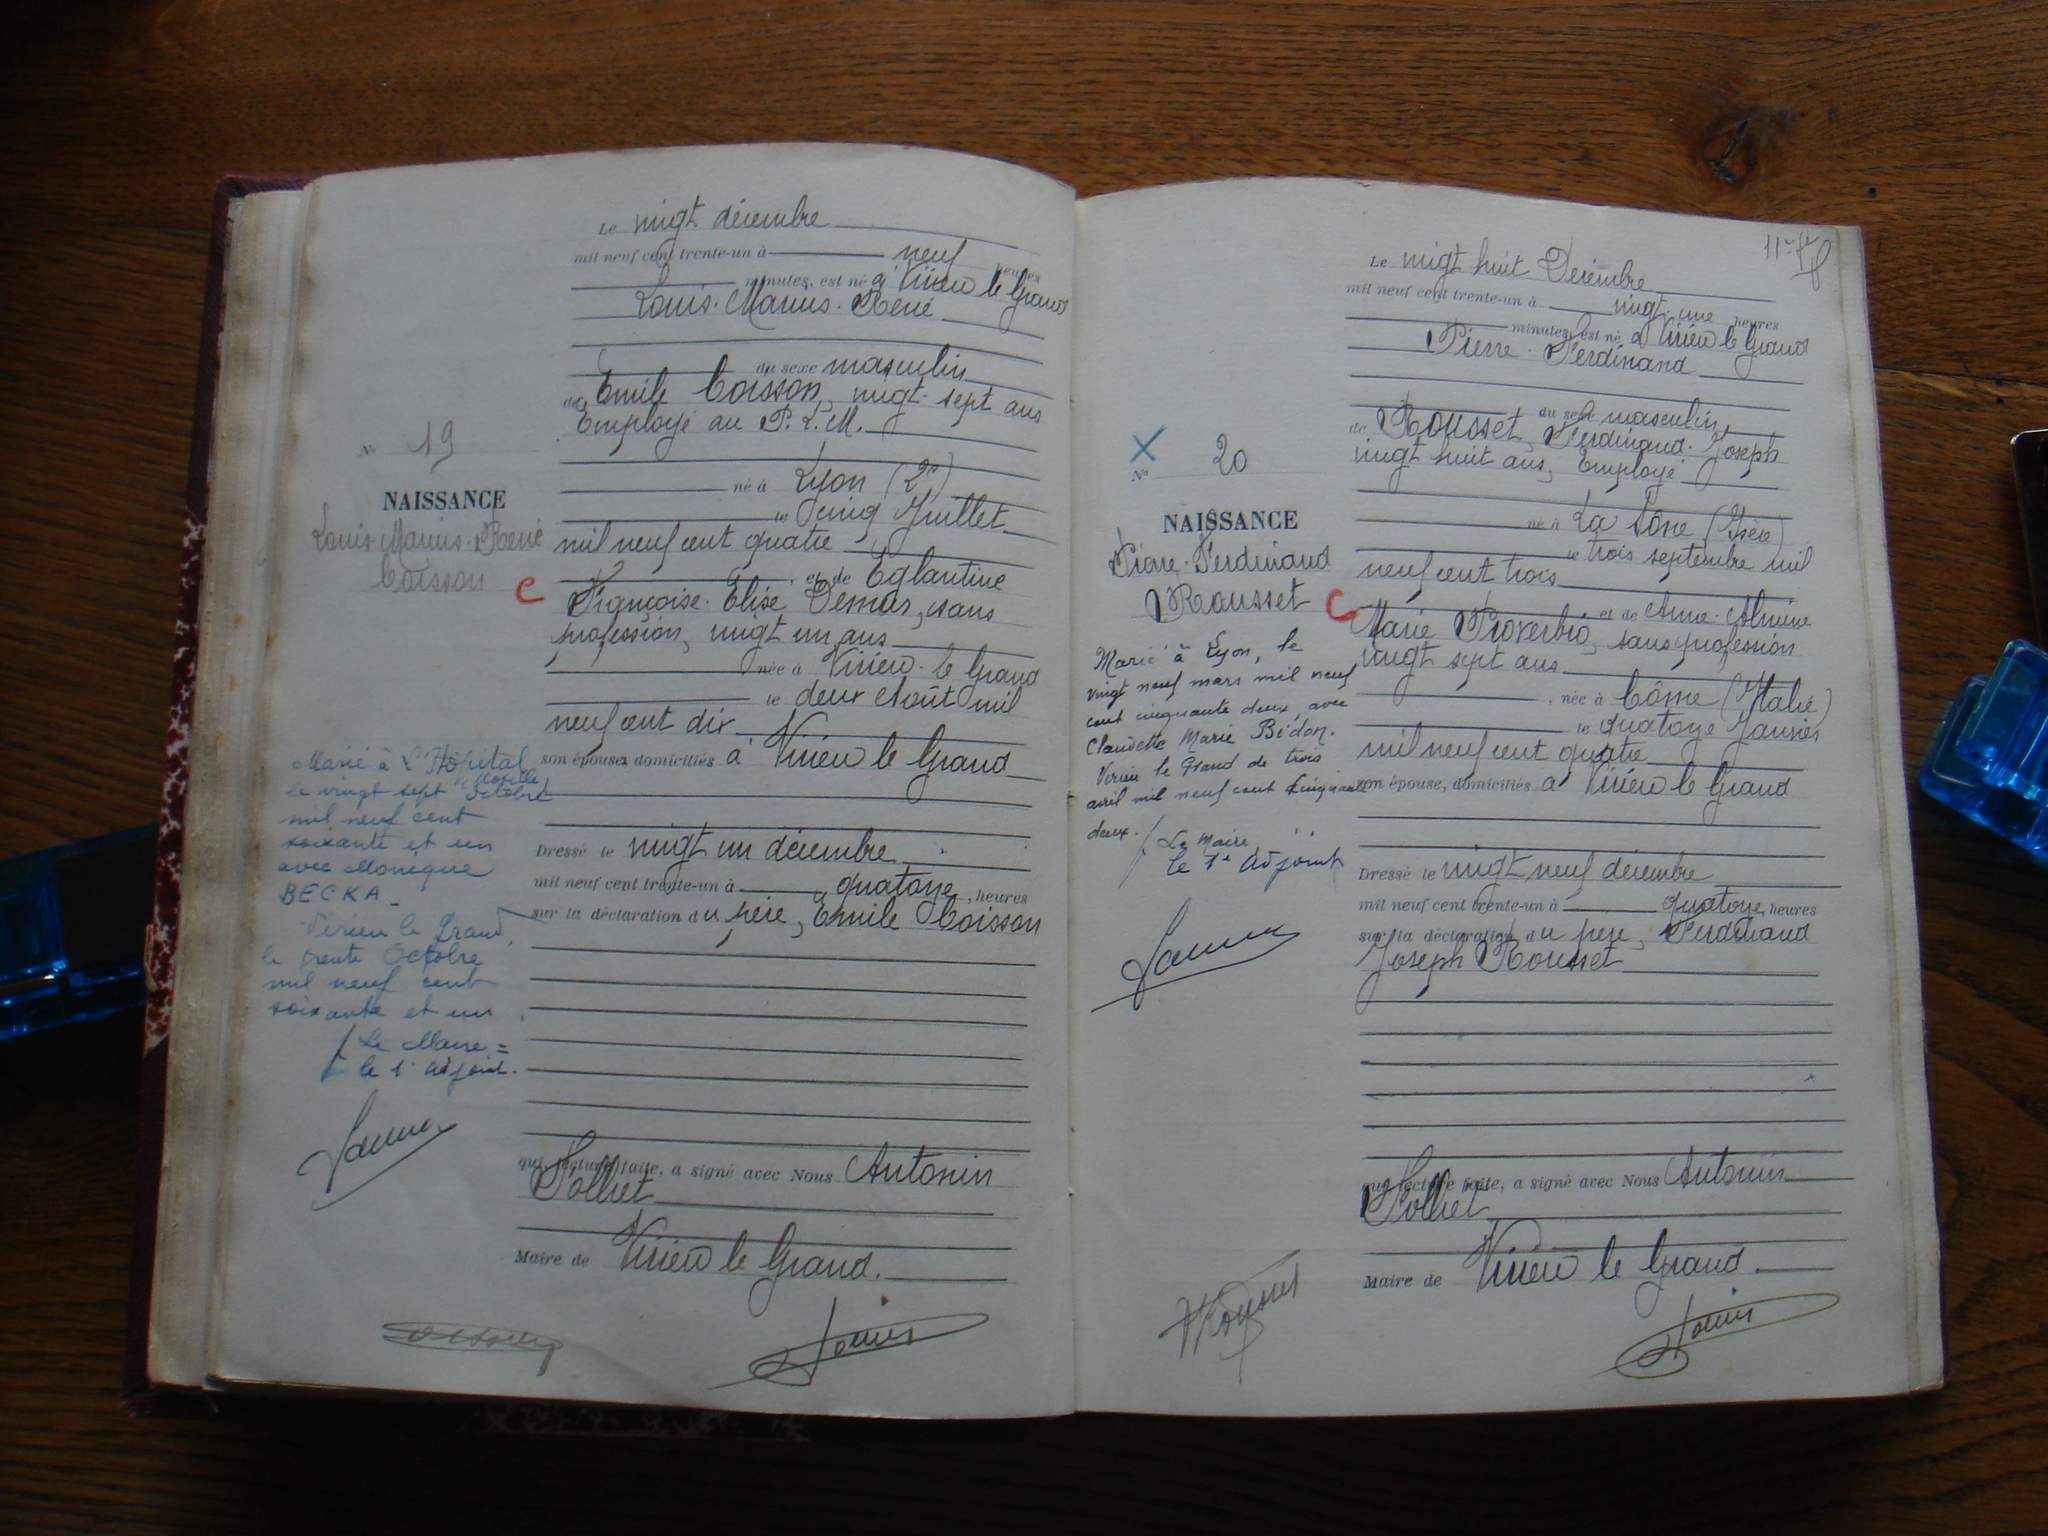 Le vingt décembre
mil neuf cent trente-un à neuf heures
minutes, est né à Virieu le Grand
Louis-Marius-René
du sexe masculin
de Emile Coisson, vingt-sept ans
Employé au P.L.M.
né à Lyon (2e)
le cinq Juillet
mil neuf cent quatre
et de Eglantine
Françoise-Elise Demus, sans
profession, vingt un ans
née à Virieu-le Grand
le deux Août mil
neuf cent dix
son épouse, domiciliés à Virieu le Grand
Dressé le vingt un décembre
mil neuf cent trente-un à quatorze heures
sur la déclaration du père, Emile Coisson
qui, lecture faite, a signé avec Nous Antonin
Maire de Virieu le Grand.
No 19
NAISSANCE
Louis-Marius-René
Coisson
C
Marié à L'Hôpital
Moselle
le vingt sept Octobre
mil neuf cent
soixante et un
avec Monique
BECKA_
Virieu le Grand,
le trente Octobre
mil neuf cent
soixante et un
/ Le Maire =
le 1er adjoint.
Le vingt huit Décembre
mil neuf cent trente-un à vingt-une heures
minutes, est né à Virieu le Grand
Pierre-Ferdinand
du sexe masculin
de Rousset, Ferdinand-Joseph
vingt huit ans, Employé
né à La Sône (Isère)
le trois septembre mil
neuf cent trois
et de Anne-Almine
Marie Proverbio, sans profession
vingt sept ans
née à Côme (Italie)
le quatorze Janvier
mil neuf cent quatre
son épouse, domiciliés à Virieu le Grand
Dressé le vingt neuf décembre
mil neuf cent trente-un à quatorze heures
sur la déclaration du père, Ferdinand
Joseph Rousset
qui, lecture faite, a signé avec Nous Antonin
Maire de Virieu le Grand.
No 20
NAISSANCE
Pierre-Ferdinand
Rousset
C
Marié à Lyon, le
vingt neuf mars mil neuf
cent cinquante deux, avec
Claudette Marie Bidon.
Virieu le Grand le trois
avril mil neuf cent cinquante
deux. / Le Maire,
le 1er Adjoint
Rousset